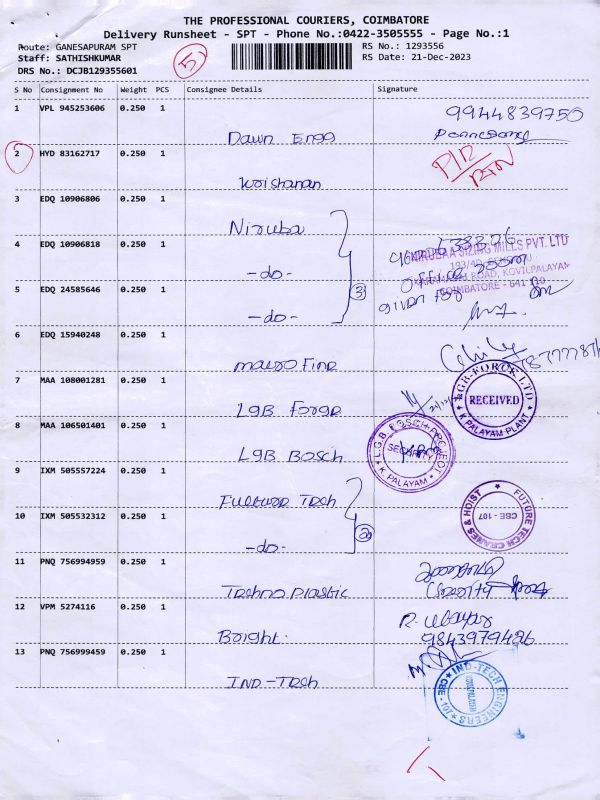 THE PROFESSIONAL COURIERS, COIMBATORE
Delivery Runsheet - SPT - Phone No.:0422-3505555 - Page No.:1
Route: GANESAPURAM SPT
RS No.: 1293556
Staff: SATHISHKUMAR
RS Date: 21-Dec-2023
DRS No.: DCJB129355601
5
S No Consignment No Weight PCS Consignee Details Signature
1 VPL 945253606 0.250 1
9944839750
Dawn Engg
2 HYD 83162717 0.250 1
RTN
3 EDQ 10906806 0.250 1
Niruba
4 EDQ 10906818 0.250 1
-do-
SIZING MILLS PVT. LTD
ROAD, KOVILPALAYAM
COIMBATORE - 641 110
3
5 EDQ 24585646 0.250 1
-do-
6 EDQ 15940248 0.250 1
macro Fine
7 MAA 108001281 0.250 1
LGB Forge
LGB-FORGE LTD
RECEIVED
K PALAYAM PLANT
8 MAA 106501401 0.250 1
LGB Bosch
L.G.B. BOSCH PROJECT
SECURITY
K. PALAYAM
9 IXM 505557224 0.250 1
Future Tech
FUTURE TECH CRANES & HOIST
CBE - 107
10 IXM 505532312 0.250 1
-do-
2
11 PNQ 756994959 0.250 1
Techno Plastic
12 VPM 5274116 0.250 1
Bright
9843979426
13 PNQ 756999459 0.250 1
IND-Tech
IND-TECH ENGINEERS
CBE - 107